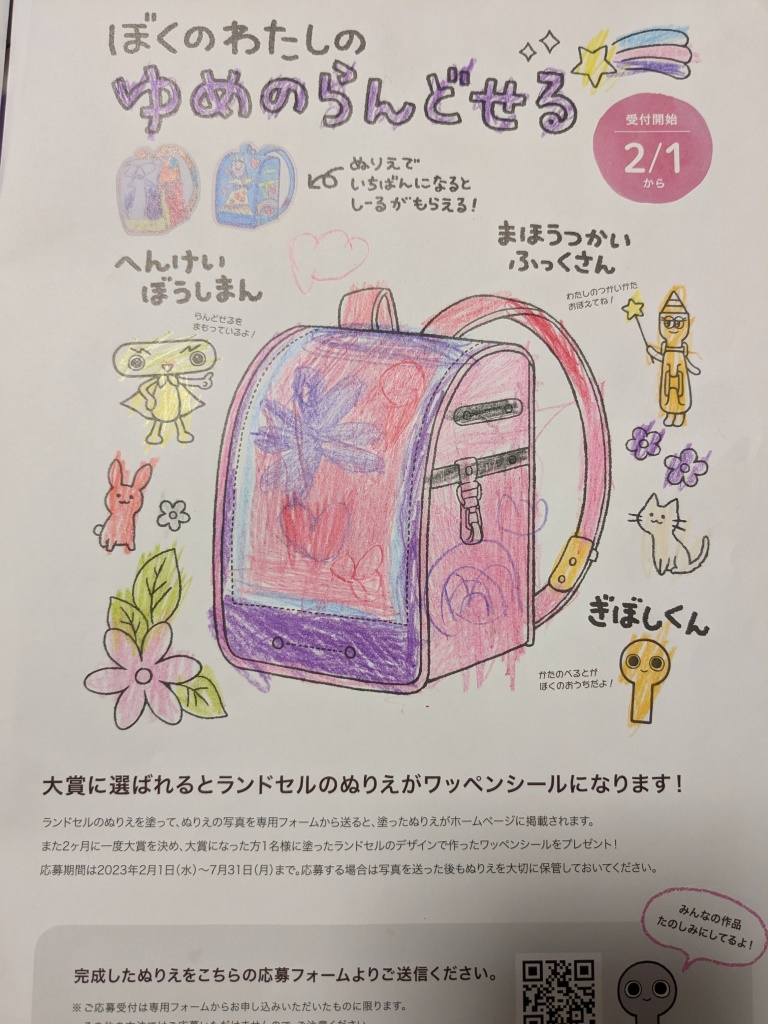 ぼくのわたしの
ゆめのらんどせる
受付開始
2/1
から
ぬりえで
いちばんになると
しーるがもらえる!
へんけい
ぼうしまん
らんどせるを
まもっているよ!
まほうつかい
ふっくさん
わたしのつかいかた
おぼえてね!
ぎぼしくん
かたのべるとが
ぼくのおうちだよ!
大賞に選ばれるとランドセルのぬりえがワッペンシールになります!
ランドセルのぬりえを塗って、ぬりえの写真を専用フォームから送ると、塗ったぬりえがホームページに掲載されます。
また2ヶ月に一度大賞を決め、大賞になった方1名様に塗ったランドセルのデザインで作ったワッペンシールをプレゼント!
応募期間は2023年2月1日(水)〜7月31日(月)まで。応募する場合は写真を送った後もぬりえを大切に保管しておいてください。
みんなの作品
たのしみにしてるよ!
完成したぬりえをこちらの応募フォームよりご送信ください。
※ご応募受付は専用フォームからお申し込みいただいたものに限ります。